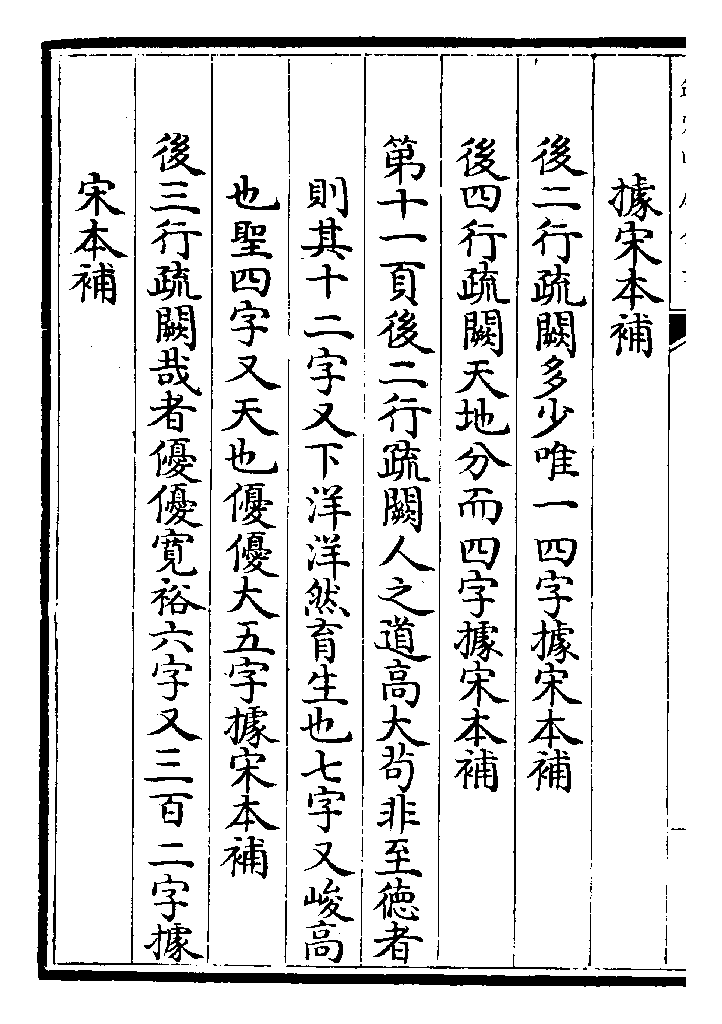 據宋本補
後二行疏闕多少唯一四字據宋本補
後四行疏闕天地分而四字據宋本補
第十一頁後二行疏闕人之道高大茍非至徳者
則其十二字又下洋洋然育生也七字又峻高
也聖四字又天也優優大五字據宋本補
後三行疏闕哉者優優寛裕六字又三百二字據
宋本補